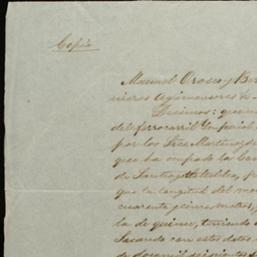 Copia
Manuel Orozco y Ber
nieros Agrimensores de
Decimos: que
del ferrocarril Imperial
por los Sres Martinez
que ha ocupado la Ca
de Santiago
que la longitud del
cuarenta y cinco metros, y
la de quince, teniendo
Sacando con estos datos
de